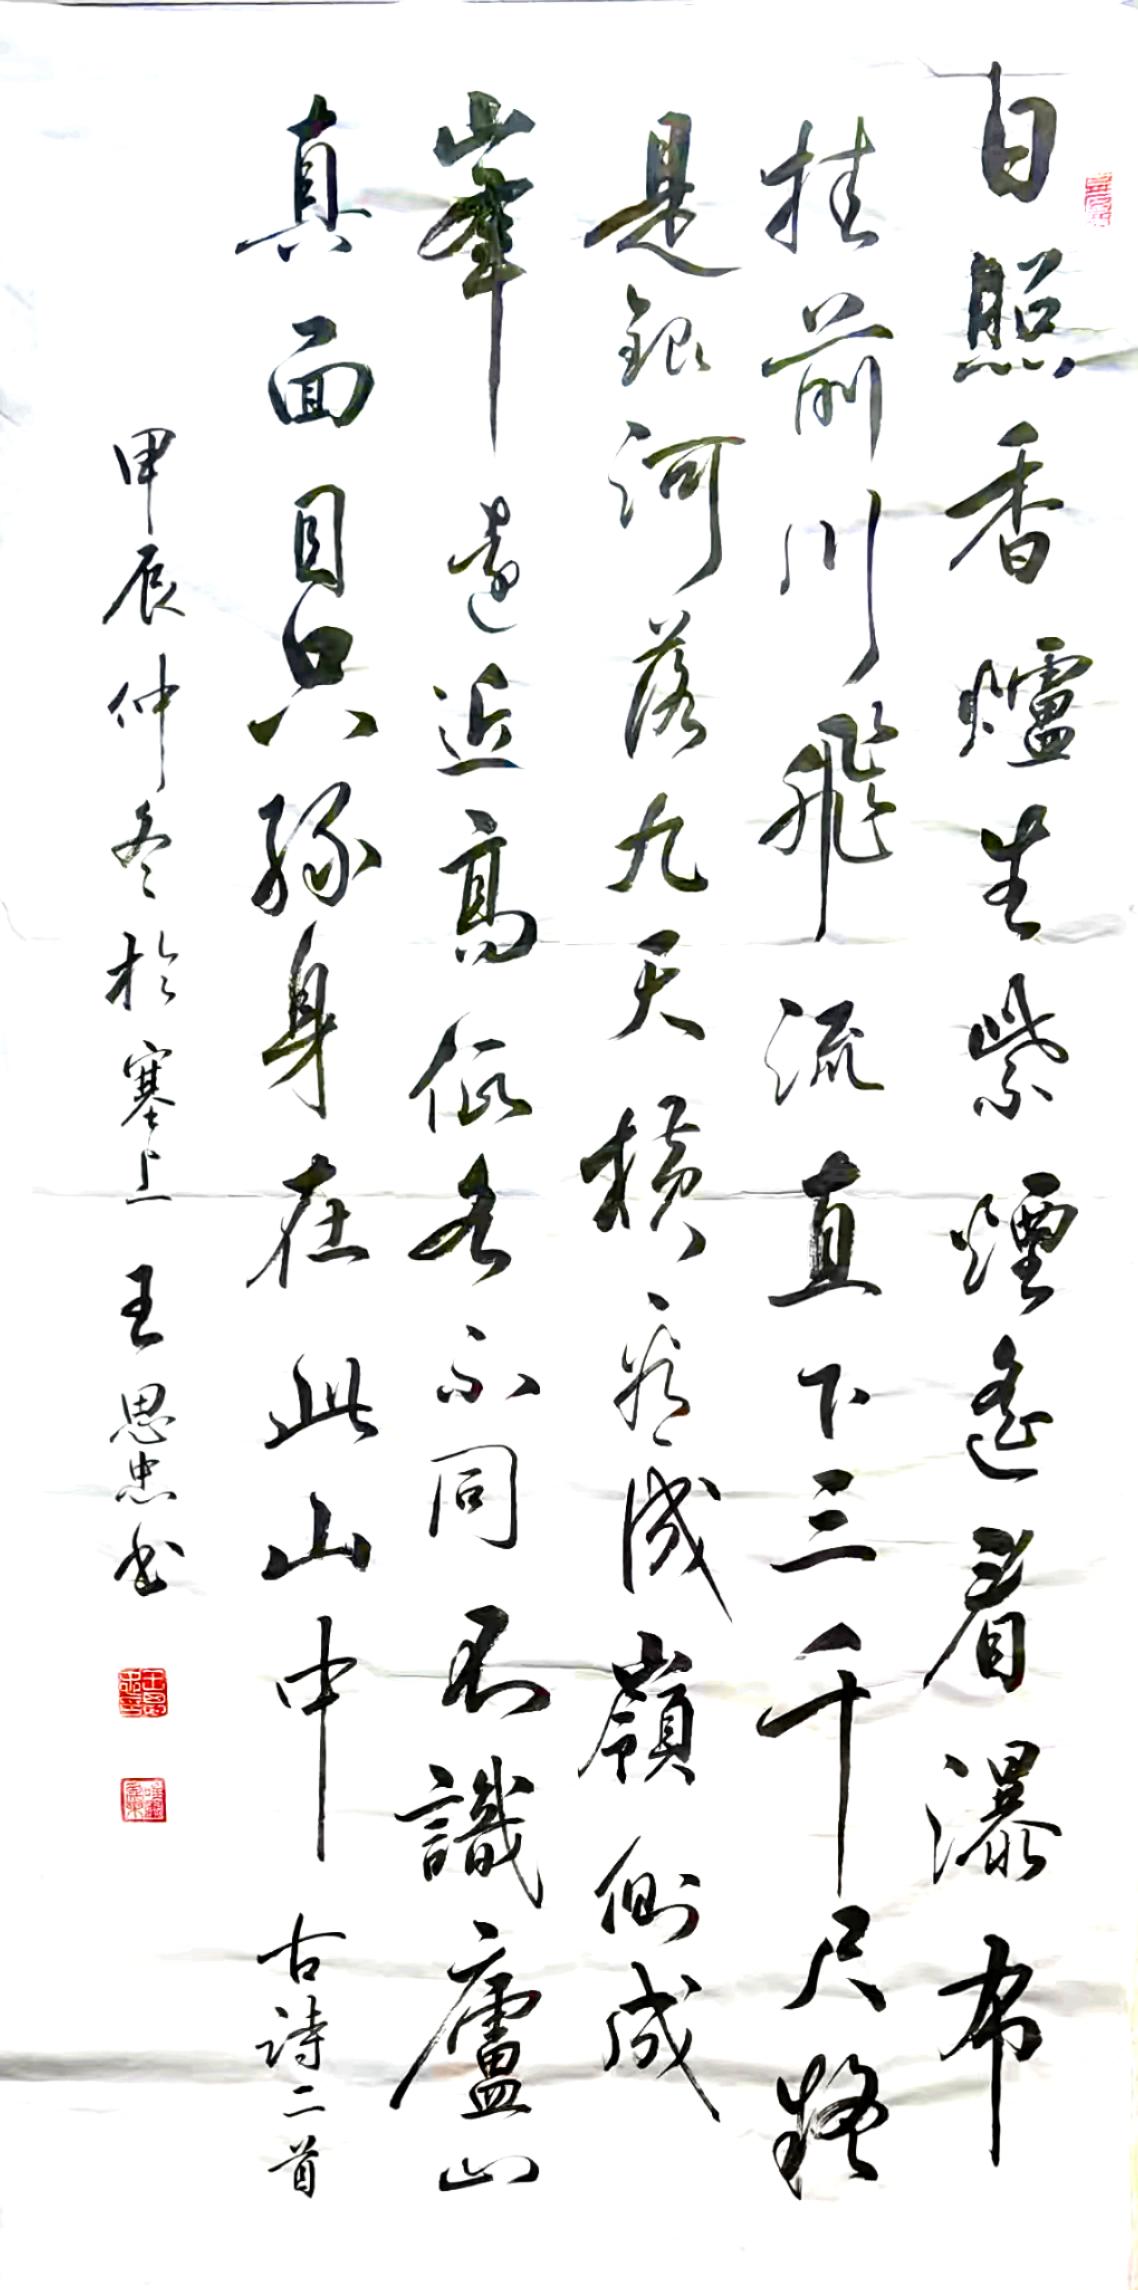 日照香爐生紫煙遙看瀑布
挂前川飛流直下三千尺疑
是銀河落九天橫看成嶺側成
峯遠近高低各不同不識廬山
真面目只緣身在此山中 古詩二首
甲辰仲冬於塞上 王思忠书
王思忠印